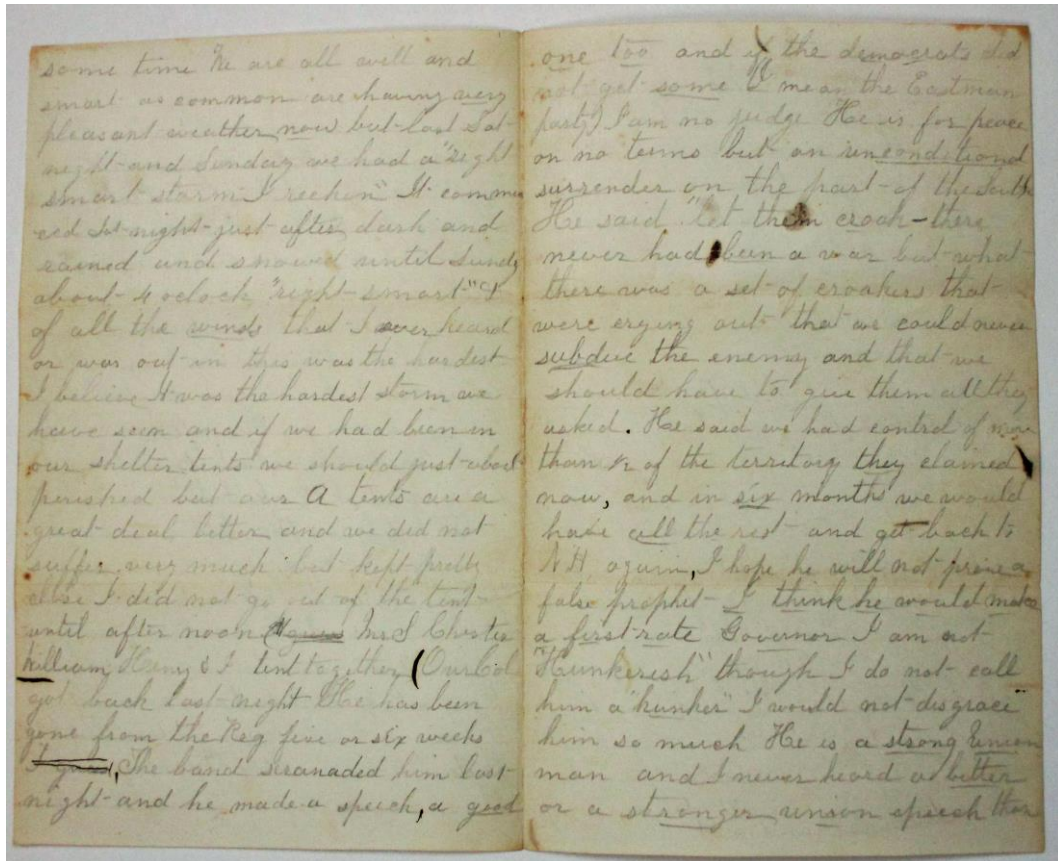 some time We are all well and
smart as common are having very
pleasant weather now but last Sat-
night and Sunday we had a "right
smart storm I reckin" It commen
ced Sat night just after dark and
rained and snowed until Sundy
about 4 oclock "right smart" &
of all the winds that I ever heard
or was out in this was the hardest
I believe it was the hardest storm we
have seen and if we had been in
our shelter tents we should just about
perished but our A tents are a
great deal better and we did not
suffer very much but kept pretty
close I did not go out of the tent
until after noon ( Mr S Chester
William, Henry & I tent together (Our Col
got back last night He has been
gone from the Reg five or six weeks
I guess, The band seranaded him last
night and he made a speech, a good
one too and if the democrats did
not get some (I mean the Eastman
party) I am no judge He is for peace
on no terms but an unconditional
surrender on the part of the South
He said "let them croak- there
never had been a war but what
there was a set of croakers that
were crying out that we could never
subdue the enemy and that we
should have to give them all they
asked. He said we had control of more
than ½ of the territory they claimed
now, and in six months we would
have all the rest and get back to
N H again, I hope he will not prove a
false prophet I think he would make
a first rate Governor I am not
"Hunkerish" though I do not call
him a "hunker" I would not disgrace
him so much He is a strong Union
man and I never heard a better
or a stronger union speech than